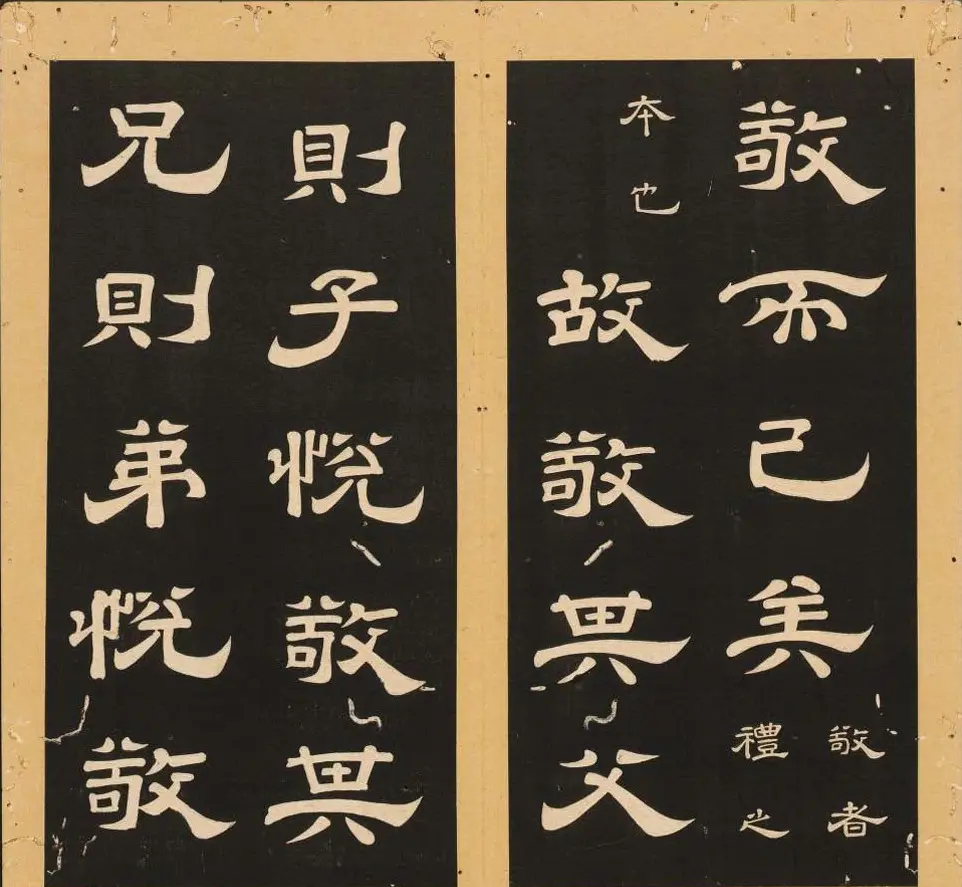 敬而已矣
敬者
禮之
本也
故敬其父
則子悅敬其
兄則弟悅敬